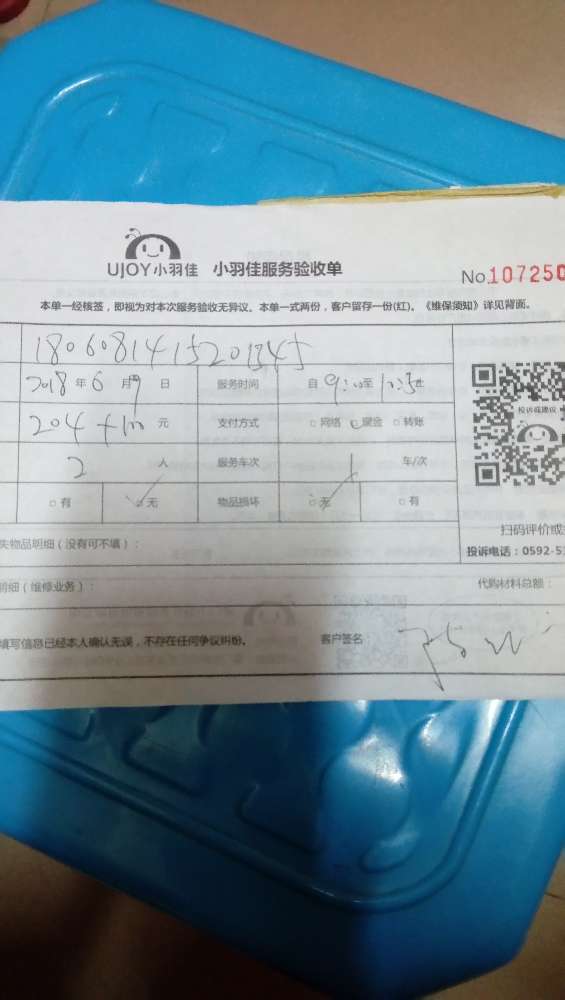 UJOY小羽佳 小羽佳服务验收单 No.107250
本单一经核签，即视为对本次服务验收无异议。本单一式两份，客户留存一份(红)。《维保须知》详见背面。
1806081415201345
2018 年 6 月 9 日 服务时间 自 9:00 至
204+100 元 支付方式 网络 现金 转账
2 人 服务车次 1 车/次
有 无 物品损坏 无 有
投诉或建议
失物品明细（没有可不填）： 扫码评价或
投诉电话：0592-5
明细（维修业务）： 代购材料总额：
填写信息已经本人确认无误，不存在任何争议纠纷。 客户签名：